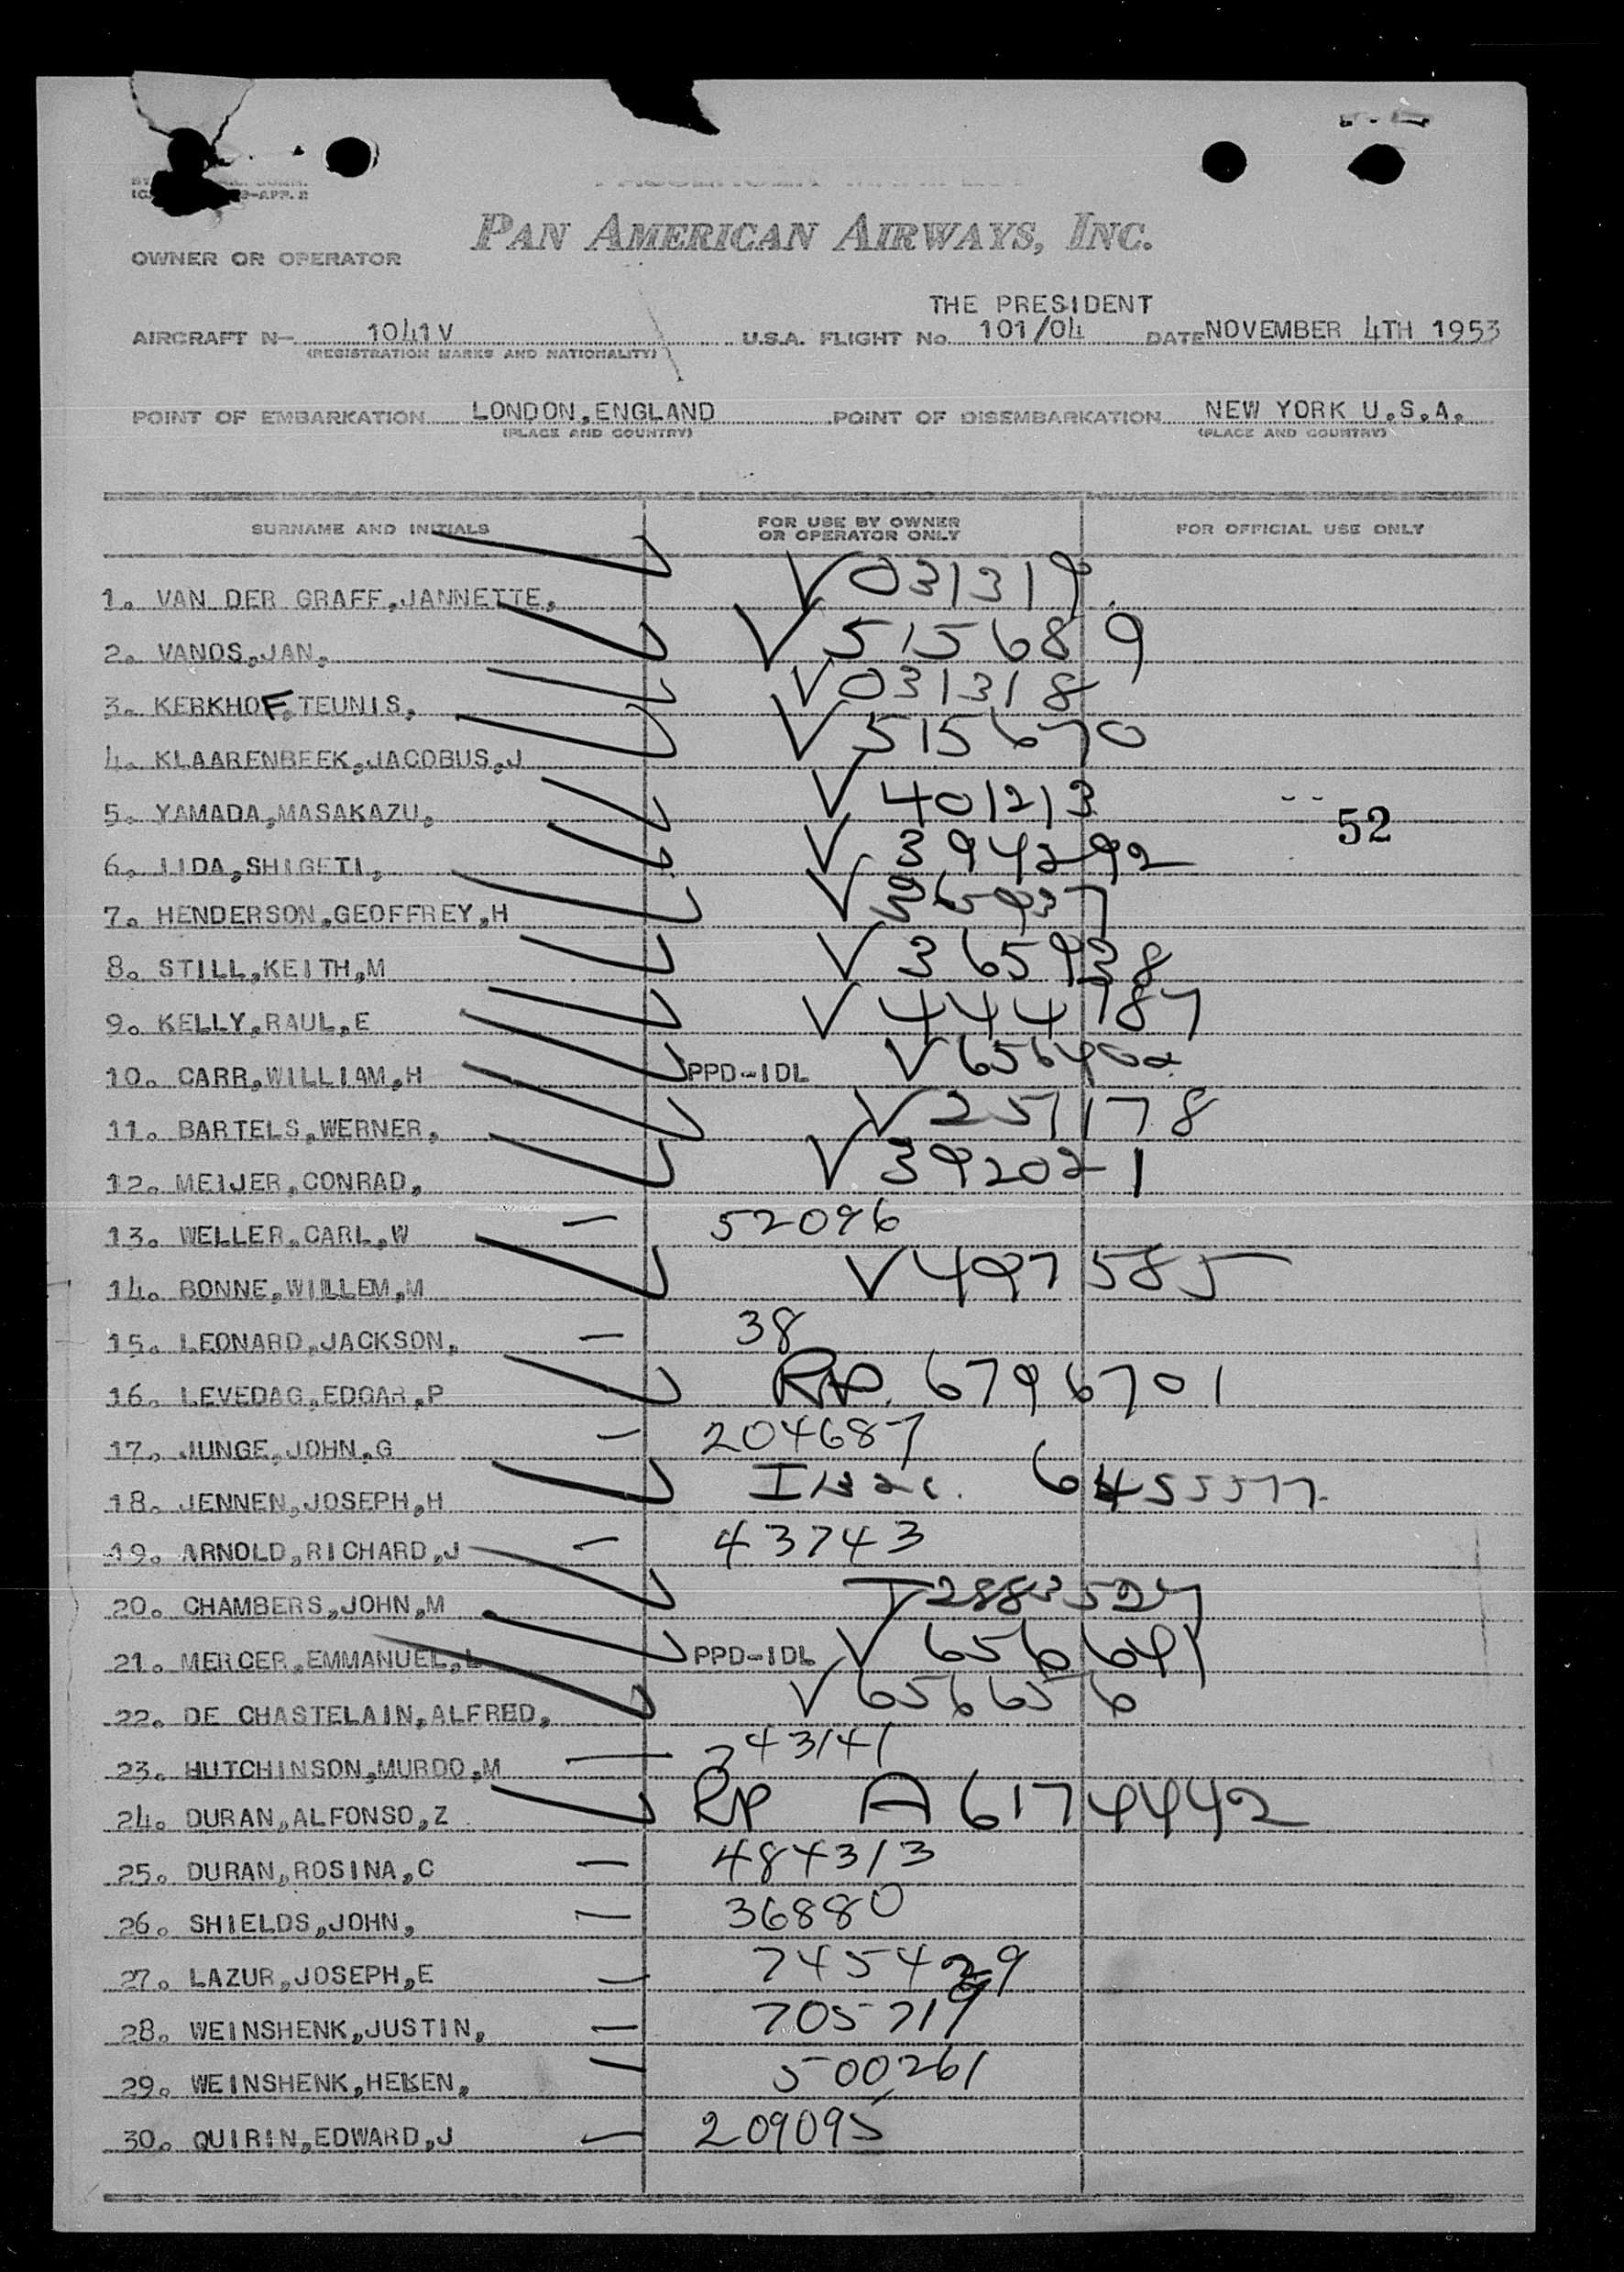 PAN AMERICAN AIRWAYS, INC.
OWNER OR OPERATOR
THE PRESIDENT
AIRCRAFT N- 1041V U.S.A. FLIGHT No. 101/04 DATE NOVEMBER 4TH 1953
(REGISTRATION MARKS AND NATIONALITY)
POINT OF EMBARKATION LONDON, ENGLAND POINT OF DISEMBARKATION NEW YORK U.S.A.
(PLACE AND COUNTRY) (PLACE AND COUNTRY)
SURNAME AND INITIALS FOR USE BY OWNER OR OPERATOR ONLY FOR OFFICIAL USE ONLY
1. VAN DER GRAFF,JANNETTE, V 031319
2. VANOS,JAN, V 515689
3. KERKHOF,TEUNIS, V 031318
4. KLAARENBEEK,JACOBUS,J V 515670
5. YAMADA,MASAKAZU, V 401213
52
6. IIDA,SHIGETI, V 394292
7. HENDERSON,GEOFFREY,H V 365937
8. STILL,KEITH,M V 365938
9. KELLY,RAUL,E V 444787
10. CARR,WILLIAM,H PPD-IDL V
11. BARTELS,WERNER, V 257178
12. MEIJER,CONRAD, V 392021
13. WELLER,CARL,W — 52096
14. BONNE,WILLEM,M V 497585
15. LEONARD,JACKSON, — 38
16. LEVEDAG,EDGAR,P RP. 6796701
17. JUNGE,JOHN,G — 204687
18. JENNEN,JOSEPH,H
19. ARNOLD,RICHARD,J — 43743
20. CHAMBERS,JOHN,M
21. MERCER,EMMANUEL,L PPD-IDL V 656641
22. DE CHASTELAIN,ALFRED, V 656656
23. HUTCHINSON,MURDO,M — 243141
24. DURAN,ALFONSO,Z RP A 6174442
25. DURAN,ROSINA,C — 484313
26. SHIELDS,JOHN, — 36880
27. LAZUR,JOSEPH,E —
28. WEINSHENK,JUSTIN, — 705719
29. WEINSHENK,HELEN, — 500261
30. QUIRIN,EDWARD,J — 209095